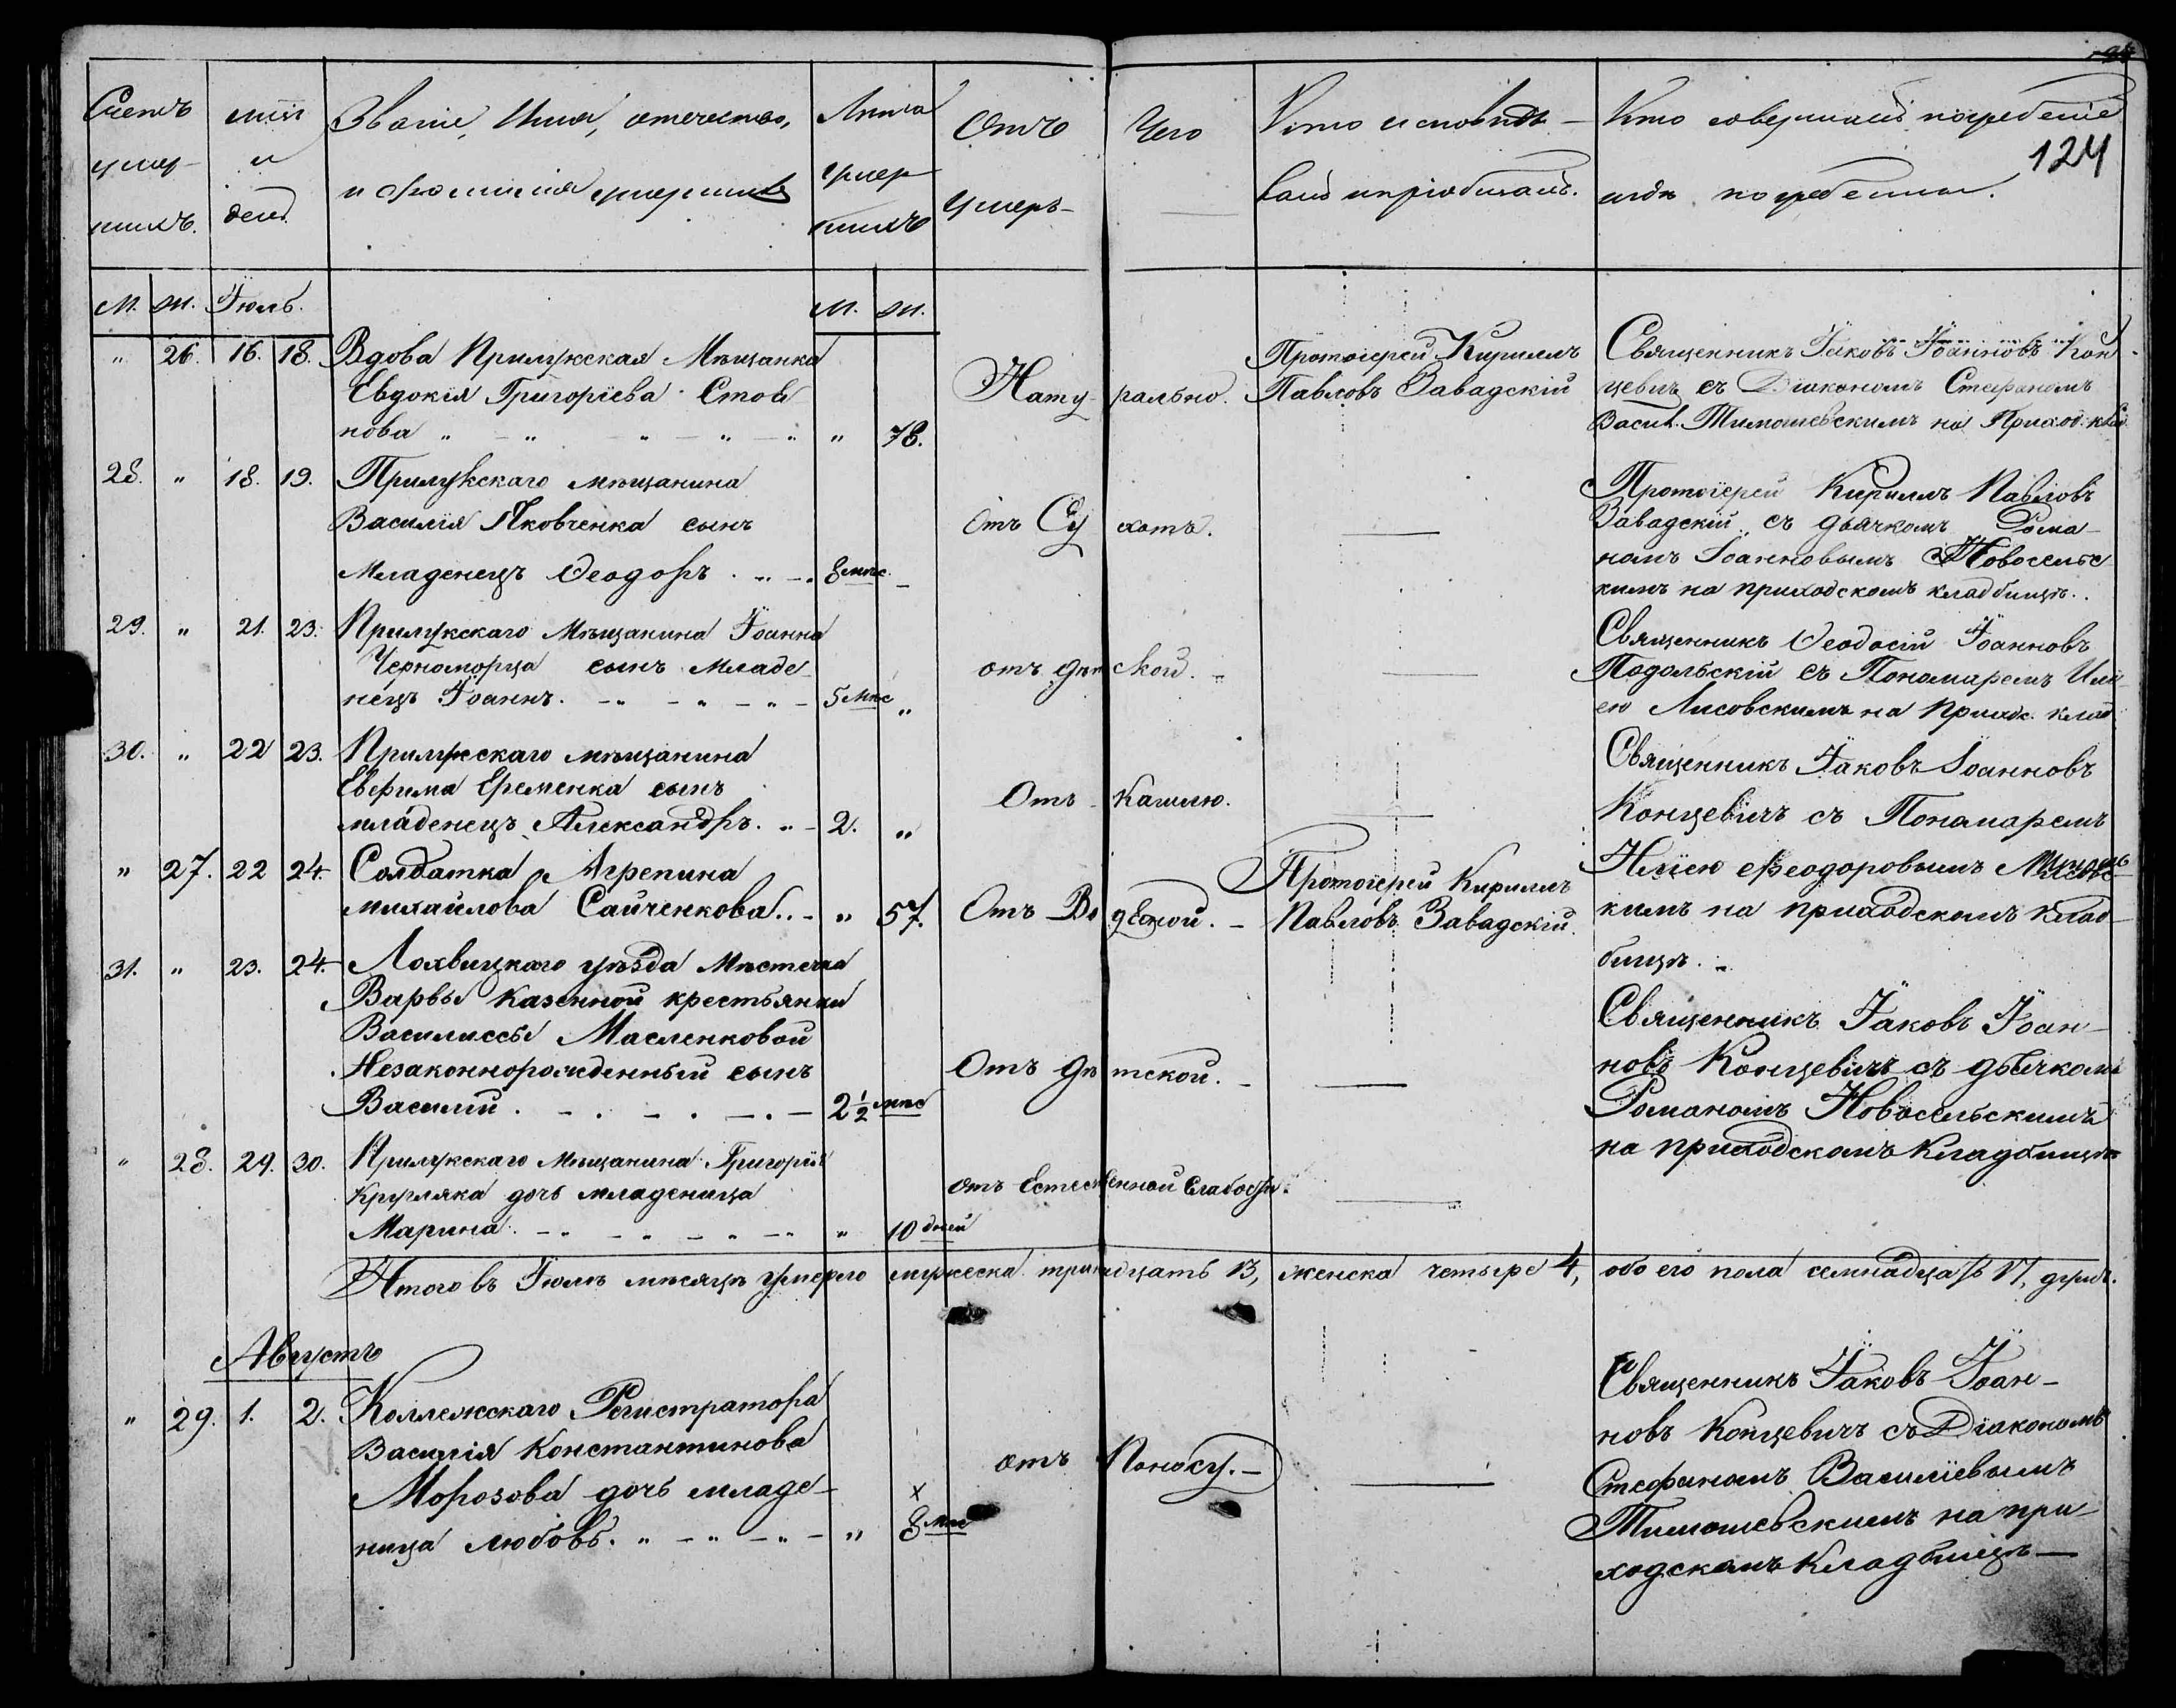 124
Счетъ умер-шихъ.
м-цъ и день.
Званіе, Имя, отечество, и фамилія умершихъ
Лѣта умер шихъ
Отъ Чего умеръ
Кто исповѣды-валъ и пріобщалъ.
Кто совершалъ погребеніе и гдѣ погребены.
М. Ж. Іюль. М. Ж.
" 26. 16. 18. Вдова Прилужская Мѣщанка
Евдокія Григоріева Стов
нова " - " - " - " - " " 78.
Натурально.
Протоіерей Кириллъ
Павловъ Завадскій
Священникъ Іаковъ Іоанновъ Кон-
цевичъ съ Діакономъ Стефаномъ
Васил. Тимошевскимъ на Приход. клад.
28. " 18. 19. Прилукскаго мѣщанина
Василія Яковченка сынъ
Младенецъ Ѳеодоръ. " - . 8 мѣс. -
Отъ Сухотъ.
Протоіерей Кириллъ Павловъ
Завадскій съ дьячкомъ Рома-
номъ Іоанновымъ Новосельс
кимъ на приходскомъ кладбищѣ.
29. " 21. 23. Прилукскаго Мѣщанина Іоанна
Черноморца сынъ Младе-
нецъ Іоаннъ. - " - " - " - 5 мѣс "
отъ дѣтской.
Священникъ Ѳеодосій Іоанновъ
Подольскій съ Пономаремъ Илі-
ею Лисовскимъ на Приход. клад
30. " 22 23. Прилукскаго мѣщанина
Евфима Еременка сынъ
младенецъ Александръ. " - 2. "
Отъ Кашлю.
Священникъ Іаковъ Іоанновъ
Концевичъ съ Пономаремъ
Иліею Феодоровымъ Лисовс
кимъ на приходскомъ клад-
бищѣ.
" 27. 22 24. Солдатка Агрепина
михайлова Сайченкова.. - " 57.
Отъ Водяной.
Протоіерей Кириллъ
Павловъ Завадскій.
31. " 23. 24. Лохвицкаго уѣзда Мѣстечка
Варвы казенной крестьянки
Василиссы Масленковой
Незаконнорожденный сынъ
Василій. - . - . - . - 2 1/2 мѣс
Отъ дѣтской.
Священникъ Іаковъ Іоан-
новъ Концевичъ съ дьячкомъ
Романомъ Новосельскимъ
на приходскомъ кладбищѣ
" 28. 29. 30. Прилукскаго Мѣщанина Григорія
Кругляка дочь младеница
Марина. - " - " - " - " " 10 дней
отъ Естественной Слабости.
Итого въ Іюлѣ мѣсяцѣ умерло мужеска тринадцать 13, женска четыре 4, обоего пола семнадцать 17, душъ.
Августъ
" 29. 1. 2. Коллежскаго Регистратора
Василія Константинова
Морозова дочь младе-
ница Любовь. " - " - " - " 8 мѣс
х
отъ Поносу.
Священникъ Іаковъ Іоан-
новъ Концевичъ съ Діакономъ
Стефаномъ Василіевымъ
Тимошевскимъ на при-
ходскомъ Кладбищѣ